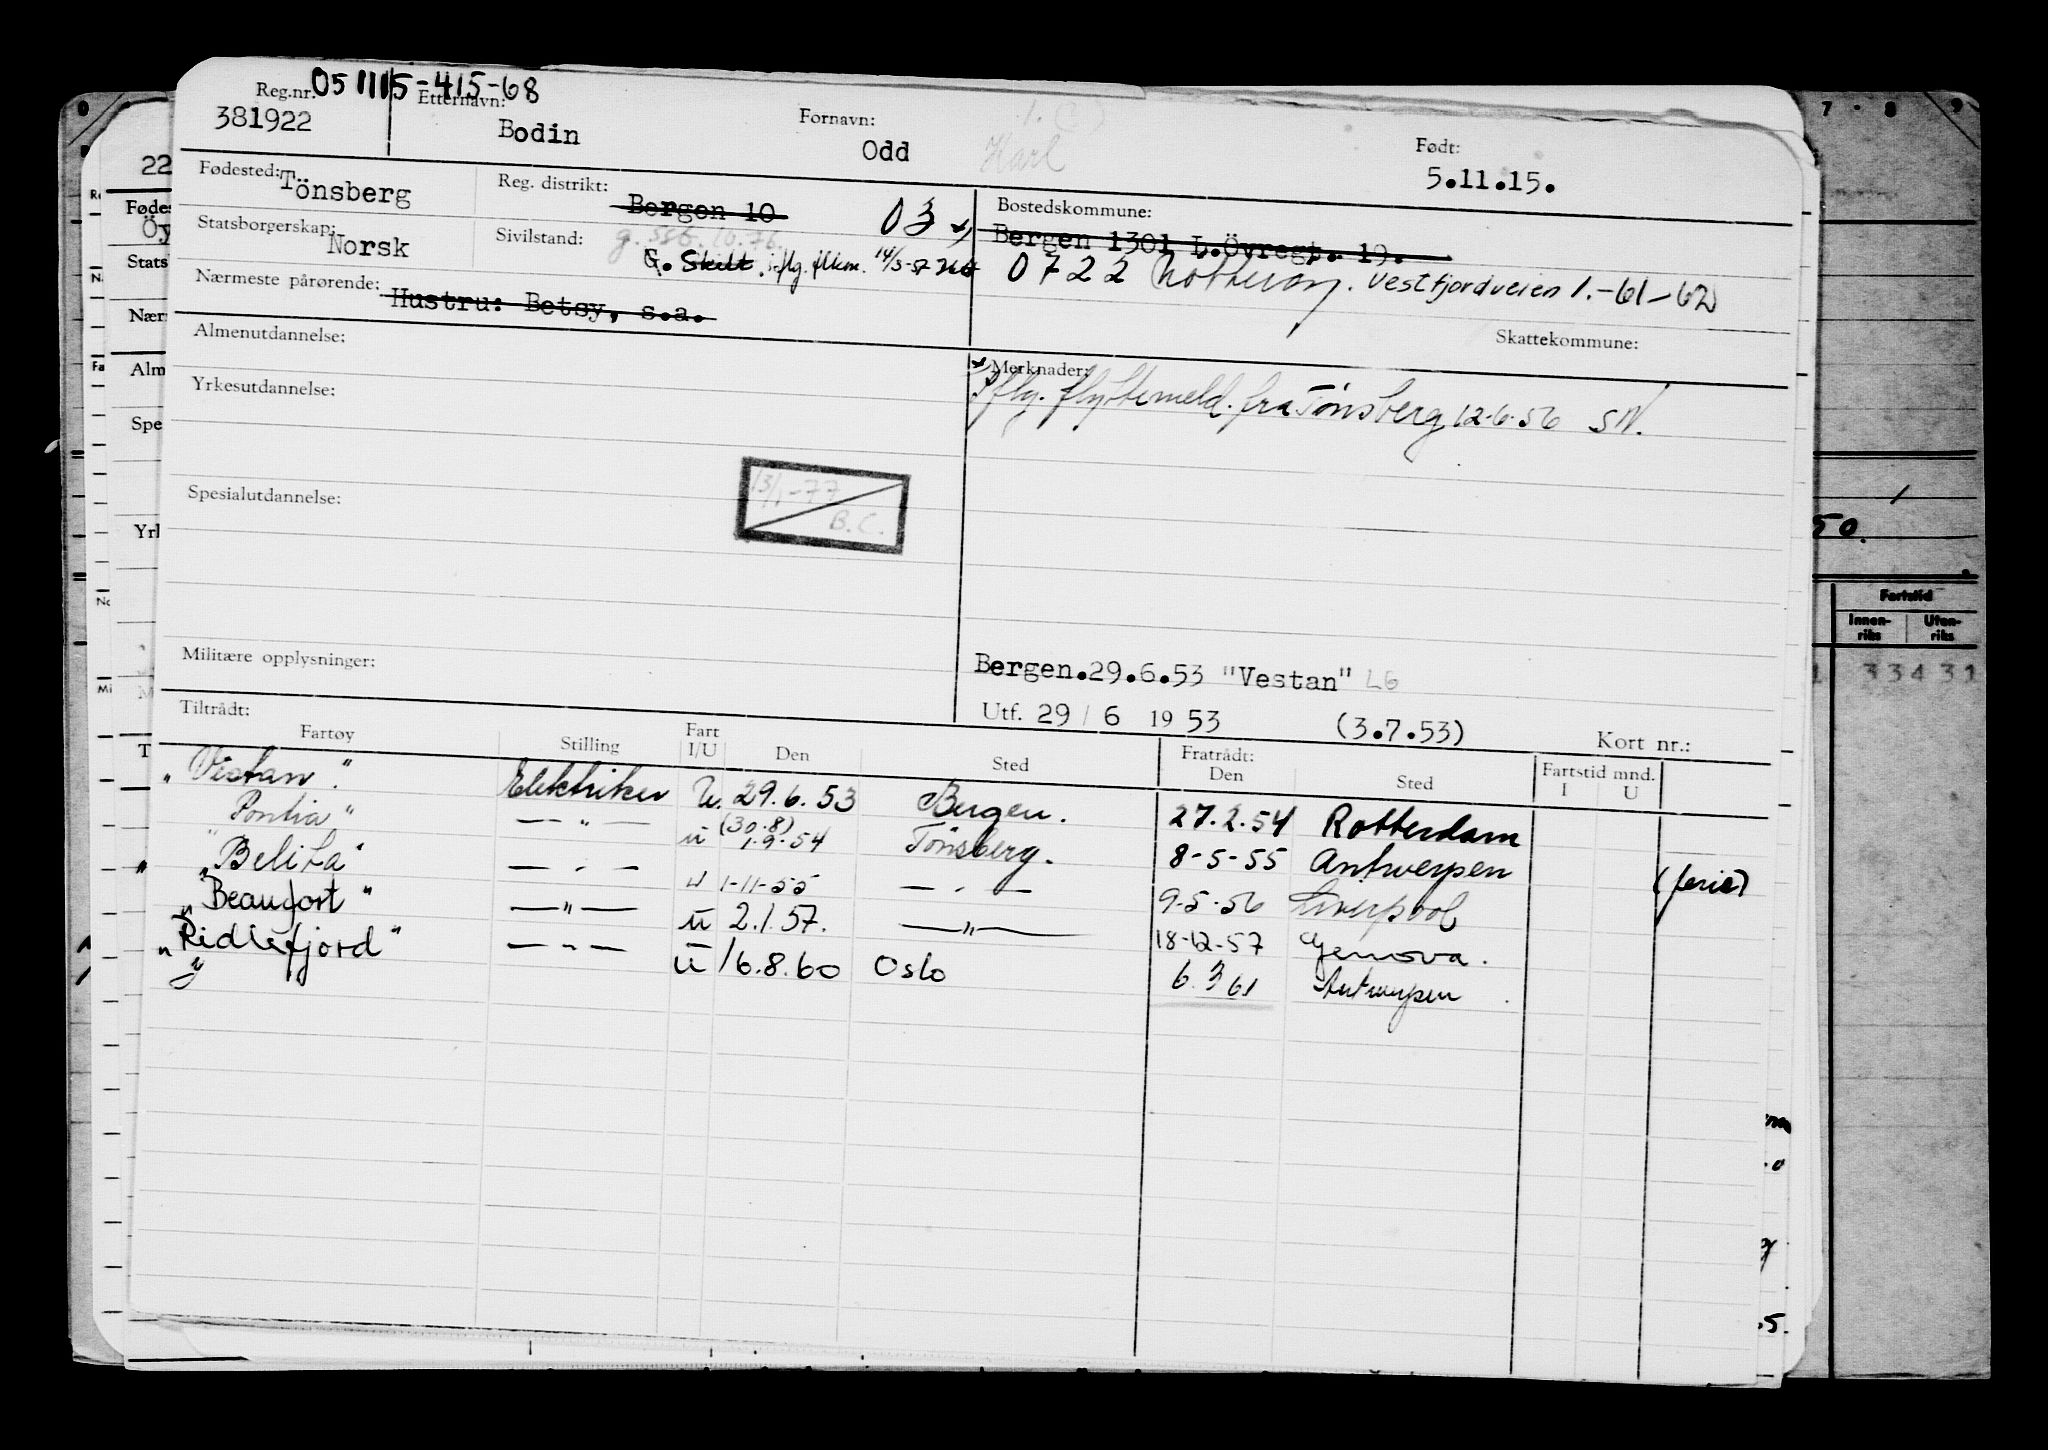 051115-415-68
Reg.nr. Etternavn: Fornavn: Født:
381922 Bodin Odd Karl 5.11.15.
Fødested: Tönsberg Reg. distrikt: Bergen 10 03 Bostedskommune:
Bergen 1301 L.Övregt. 19.
Statsborgerskap: Norsk Sivilstand:
G. Skilt iflg. 14/3-57 0722 Nötteröy. Vestfjordveien 1.-61-62
Nærmeste pårørende: Hustru: Betsy, s.a.
Skattekommune:
Almenutdannelse: Merknader:
iflg. flyttemeld. fra Tönsberg 12-6-56 SN.
Yrkesutdannelse:
13/1-77
B.C.
Spesialutdannelse:
Militære opplysninger:
Bergen.29.6.53 "Vestan" LG
Utf. 29/6 1953 (3.7.53) Kort nr.:
Tiltrådt: Fratrådt:
Fartøy Stilling Fart I/U Den Sted Den Sted Fartstid mnd. I U
"Vestan". Elektriker U. 29.6.53 Bergen. 27.2.54 Rotterdam
"Pontia" — " — u (30.8) 1.9.54 Tönsberg. 8-5-55 Antwerpen (ferie)
"Belita" — " — u 1-11-55 — " — 9-5-56 Liverpool
"Beaufort" — " — u 2.1.57. — " — 18-12-57 Genova.
"Ridlefjord" — " — u 16.8.60 Oslo 6.3 61 Antwerpen
22
50.
Fartstid
Innen-riks Uten-riks
33431